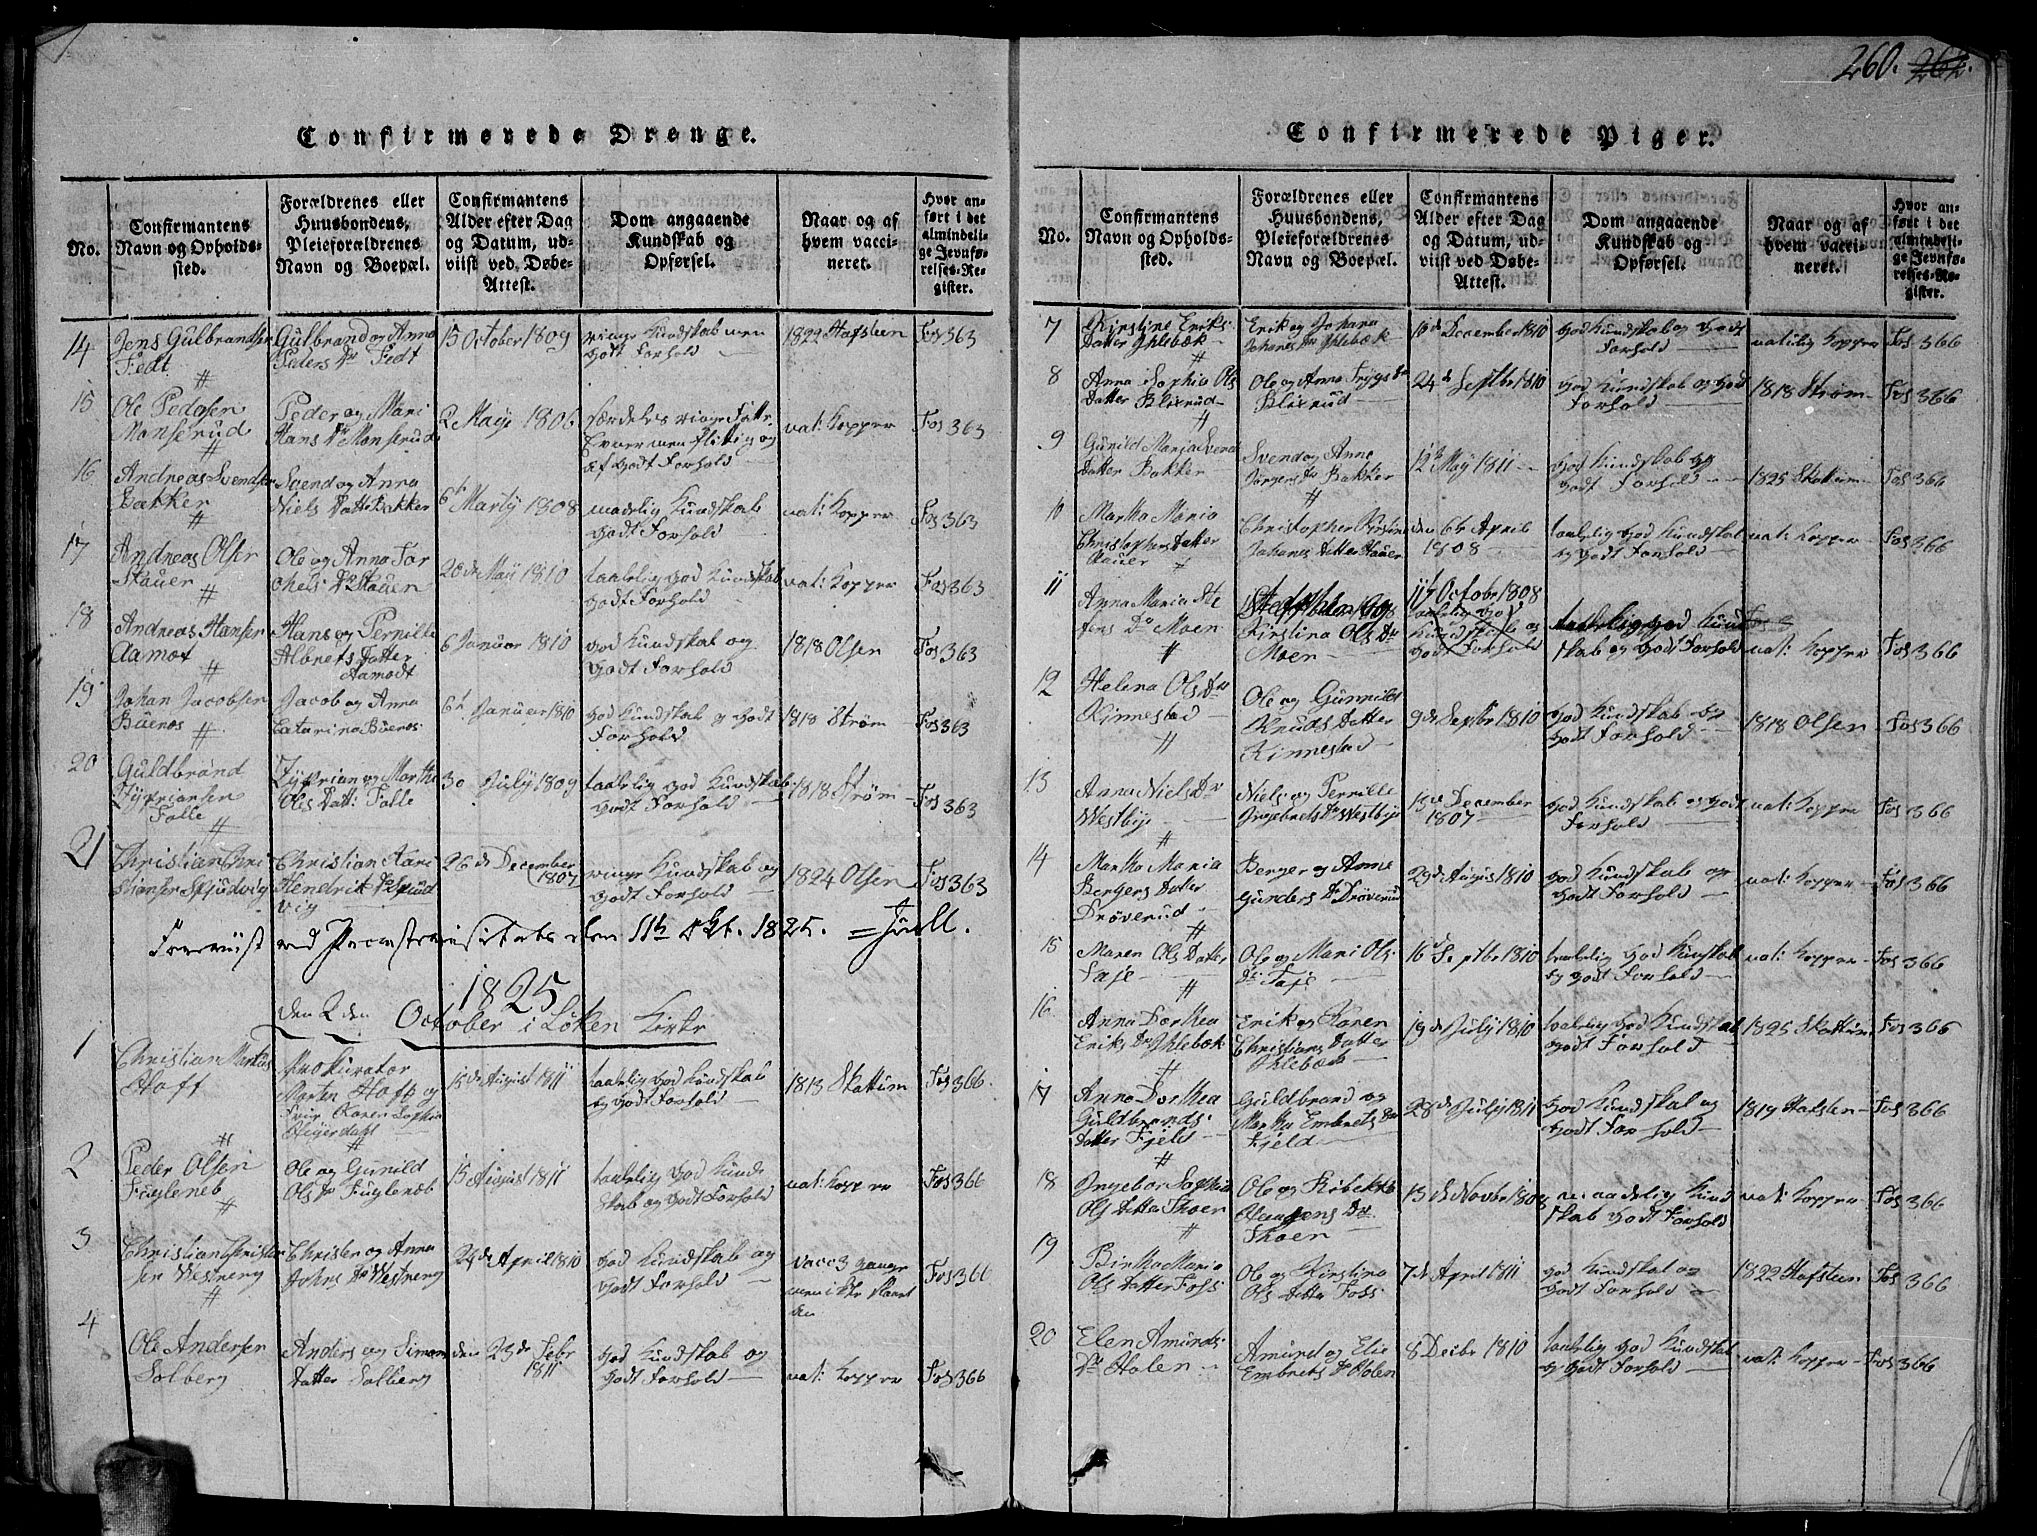 260. 262.
Confirmerede Drenge.
No.
Confirmantens
Navn og Opholds-
sted.
Forældrenes eller
Huusbondens,
Pleieforældrenes
Navn og Boepæl.
Confirmantens
Alder efter Dag
og Datum, ud-
viist ved Døbe-
Attest.
Dom angaaende
Kundskab og
Opførsel.
Naar og af
hvem vacci-
neret.
Hvor an-
ført i det
almindeli-
ge Jevnfø-
relses-Re-
gister.
14
Jens Gulbrandsen
Fedt
Gulbrand og Anna
Peders Dr Fedt
15 October 1809
ringe Kundskab men
godt Forhold
1822 Hafsteen
Fos 363
15
Ole Pedersen
Monserud
Peder og Mari
Hans Dr Monserud
2 May 1806
særdeles ringe Fatte
Evner men flittig og
af godt Forhold
nat: Kopper
Fos 363
16
Andreas Svendsen
Bakker
Svend og Anna
Niels Datter Bakker
6th Marty 1808
maadelig Kundskab
godt Forhold
nat: Kopper
Fos 363
17
Andreas Olsen
Haüer
Ole og Anna Tor
kels Dr Haüer
20de May 1810
taalelig god Kundskab
godt Forhold
nat: Kopper
Fos 363
18
Andreas Hansen
Aamot
Hans og Pernille
Albrets Datter
Aamodt
6 Januar 1810
god Kundskab og
godt Forhold
1818 Olsen
Fos 363
19
Johan Jacobsen
Büenæs
Jacob og Anna
Catarina Büenæs
6th Januar 1810
god Kundskab og godt
Forhold
1818 Strøm
Fos 363
20
Guldbrand
Zypriansen
Falle
Zyprian og Marthe
Ols Datt: Falle
30 July 1809
taalelig god Kundskab
godt Forhold
1818 Strøm
Fos 363
21
Christian Chri
stiansen Skjüdvig
Christian Kari
Hendrik Dr Skiüd
vig
26de December
1807
ringe Kundskab og
godt Forhold
1824 Olsen
Fos 363
Foreviist ved Provstevisitats den 11te Oct. 1825.
1825
den 2den October i Løken Kirke
1
Christian Martius
Hoff
Prokurator
Morten Hoff og
Frue Karen Sophia
15de August 1811
taalelig god Kundskab
og godt Forhold
1813 Skattum
Fos 366.
2
Peder Olsen
Fugleneb
Ole og Gunild
Ols Dr Fuglenæb
15 August 1811
taalelig god Kund
skab og godt Forhold
nat: Kopper
Fos 366
3
Christian Christer
sen Westreng
Christer og Anna
Johns Dr Westreng
24de April 1810
god Kundskab og
godt Forhold
vacc 3 gange
men ikke slaaet
an
Fos 366
4
Ole Andersen
Solberg
Anders og Simons
Datter Solberg
den 23de Febr
1811
god Kundskab og
godt Forhold
nat: Kopper
Fos 366
Confirmerede Piger.
No.
Confirmantens
Navn og Opholds-
sted.
Forældrenes eller
Huusbondens,
Pleieforældrenes
Navn og Boepæl.
Confirmantens
Alder efter Dag
og Datum, ud-
viist ved Døbe-
Attest.
Dom angaaende
Kundskab og
Opførsel.
Naar og af
hvem vacci-
neret.
Hvor an-
ført i det
almindeli-
ge Jevnfø-
relses-Re-
gister.
7
Kirstine Eriks
Datter Ihlebæk
Erik og Johana
Johanes Dr Ihlebæk
10de December 1810
god Kundskab og godt
Forhold
natulig Kopper
Fos 366
8
Anna Sophia Ols
Datter Blixrud
Ole og Anna Trygs Dr
Blixrud
24de Septbr 1810
god Kundskab og godt
Forhold
1818 Strøm
Fos 366
9
Gunild Maria Svends
Datter Bakker
Svend og Anna
Jørgens Dr Bakker
12te May 1811
god Kundskab og
godt Forhold
1825 Skattum
Fos 366
10
Martha Maria
Christophers Datter
Haüer
Christopher Kirstina
Johanes Datter Haüer
den 6te April
1808
taalelig god Kundskab
og godt Forhold
nat: Kopper
Fos 366
11
Anna Maria Ste
fens Dr Moen
Steffen og
Kirstina Ols Dr
Moen
11te Octobr 1808
taalelig god
Kundskab og
godt Forhold
taalelig god Kund
skab og godt Forhold
nat: Kopper
Fos 366
12
Helena Ols Dr
Kinnestad
Ole og Gunnild
Knuds Datter
Kinnestad
9de Septbr 1810
god Kundskab og
godt Forhold
1818 Olsen
Fos 366
13
Anna Niels Dr
Westbye
Niels og Pernille
Ingebrets Dr Westbye
15de December
1807
god Kundskab og godt
Forhold
nat: Kopper
Fos 366
14
Martha Maria
Bergers Datter
Drøverud
Berger og Anne
Gunders Dr Drøverud
29de Augus 1810
god Kundskab og
godt Forhold
nat: Kopper
Fos 366
15
Maren Ols Datter
Taje
Ole og Mari Ols
Dr Taje
16de Septbr 1810
taalelig god Kundskab
og godt Forhold
nat: Kopper
Fos 366
16
Anna Dorthea
Eriks Dr Ihlebæk
Erik og Karen
Christians Datter
Ihlebæk
19de July 1810
taalelig god Kundskab
godt Forhold
1825 Skattum
Fos 366
17
Anna Dorthea
Guldbrands
Datter Fjeld
Guldbrand og
Martha Embrets Dr
Fjeld
28de July 1811
god Kundskab og
godt Forhold
1819 Hafsten
Fos 366
18
Ingebor Sophia
Ols Datter Skoer
Ole og Rebekka
Dr
Skoer
13de Novbr 1809
maadelig Kund
skab godt Forhold
nat: Kopper
Fos 366
19
Birtha Maria
Ols Datter Foss
Ole og Kirstina
Ols Datter Foss
7de April 1811
god Kundskab og
godt Forhold
1822 Hafsteen
Fos 366
20
Elen Amunds
Dr Holen
Amund og Elie
Embrets Dr Holen
8 Decbr 1810
taalelig god Kundskab
og godt Forhold
nat: Kopper
Fos 366